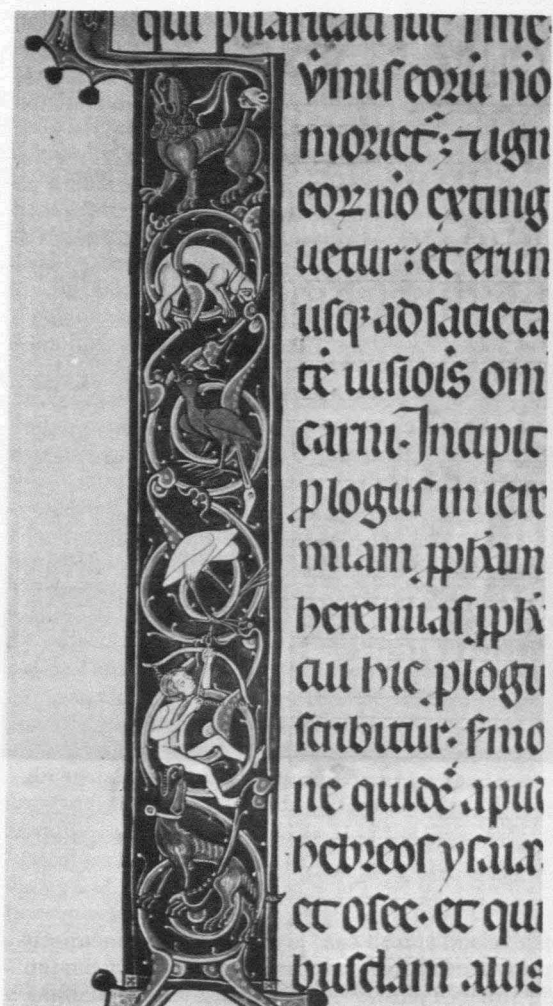 qui puaricati sūt ī me
v̄mis eorū nō
moriet᷑: ⁊ ign
eoꝝ nō exting
uetur: et erun
usqꝫ ad sacieta
tē uisiōis om
carni. Incipit
ꝓlogus in iere
miam ꝓph̄am
heremias ꝓph̄
cui hic ꝓlogu
scribitur. s̄mo
ne quidē apud
hebreos ysaia
et osee. et qui
busdam aliis